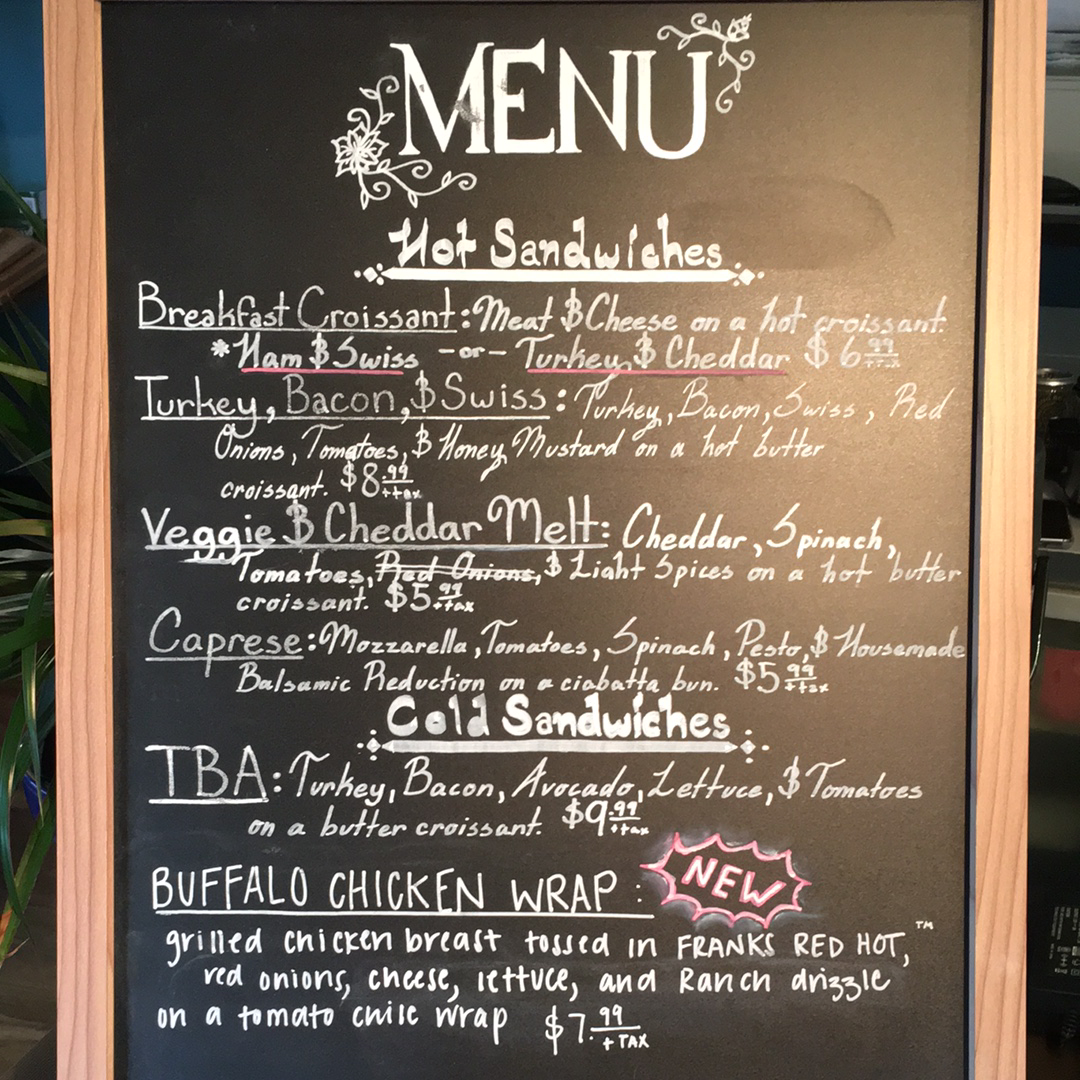 MENU
Hot Sandwiches
Breakfast Croissant: Meat & Cheese on a hot croissant.
*Ham & Swiss -or- Turkey & Cheddar $6.99 +tax
Turkey, Bacon, & Swiss: Turkey, Bacon, Swiss, Red
Onions, Tomatoes, & Honey Mustard on a hot butter
croissant. $8.99 +tax
Veggie & Cheddar Melt: Cheddar, Spinach,
Tomatoes, Red Onions, & Light Spices on a hot butter
croissant. $5.99 +tax
Caprese: Mozzarella, Tomatoes, Spinach, Pesto, & Housemade
Balsamic Reduction on a ciabatta bun. $5.99 +tax
Cold Sandwiches
TBA: Turkey, Bacon, Avocado, Lettuce, & Tomatoes
on a butter croissant. $9.99 +tax
BUFFALO CHICKEN WRAP: NEW
grilled chicken breast tossed in FRANKS RED HOT,™
red onions, cheese, lettuce, and Ranch drizzle
on a tomato chile wrap $7.99 + TAX